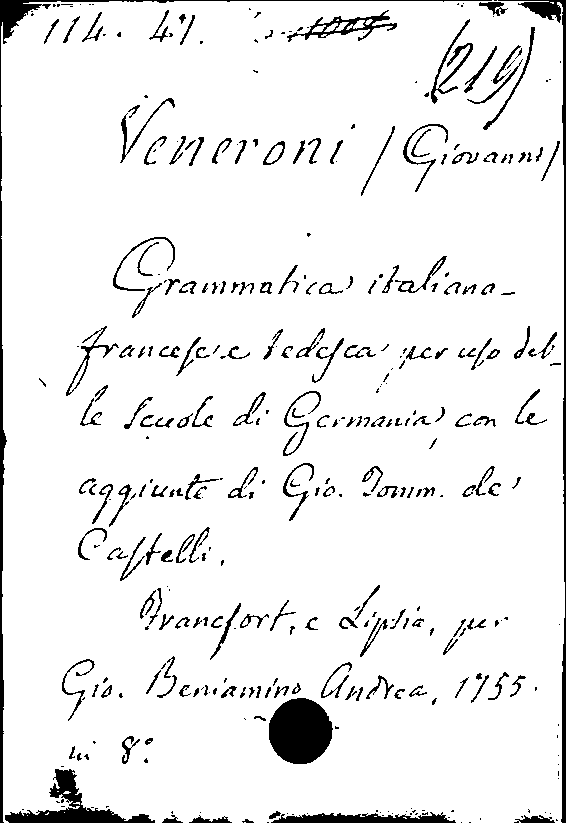 114. 47. 1005
(219)
Veneroni /Giovanni/
Grammatica italiana-
francese e tedesca per uso del-
le scuole di Germania, con le
aggiunte di Gio. Tomm. de'
Castelli.
Francfort, e Lipsia, per
Gio. Beniamino Andrea, 1755.
in 8.º